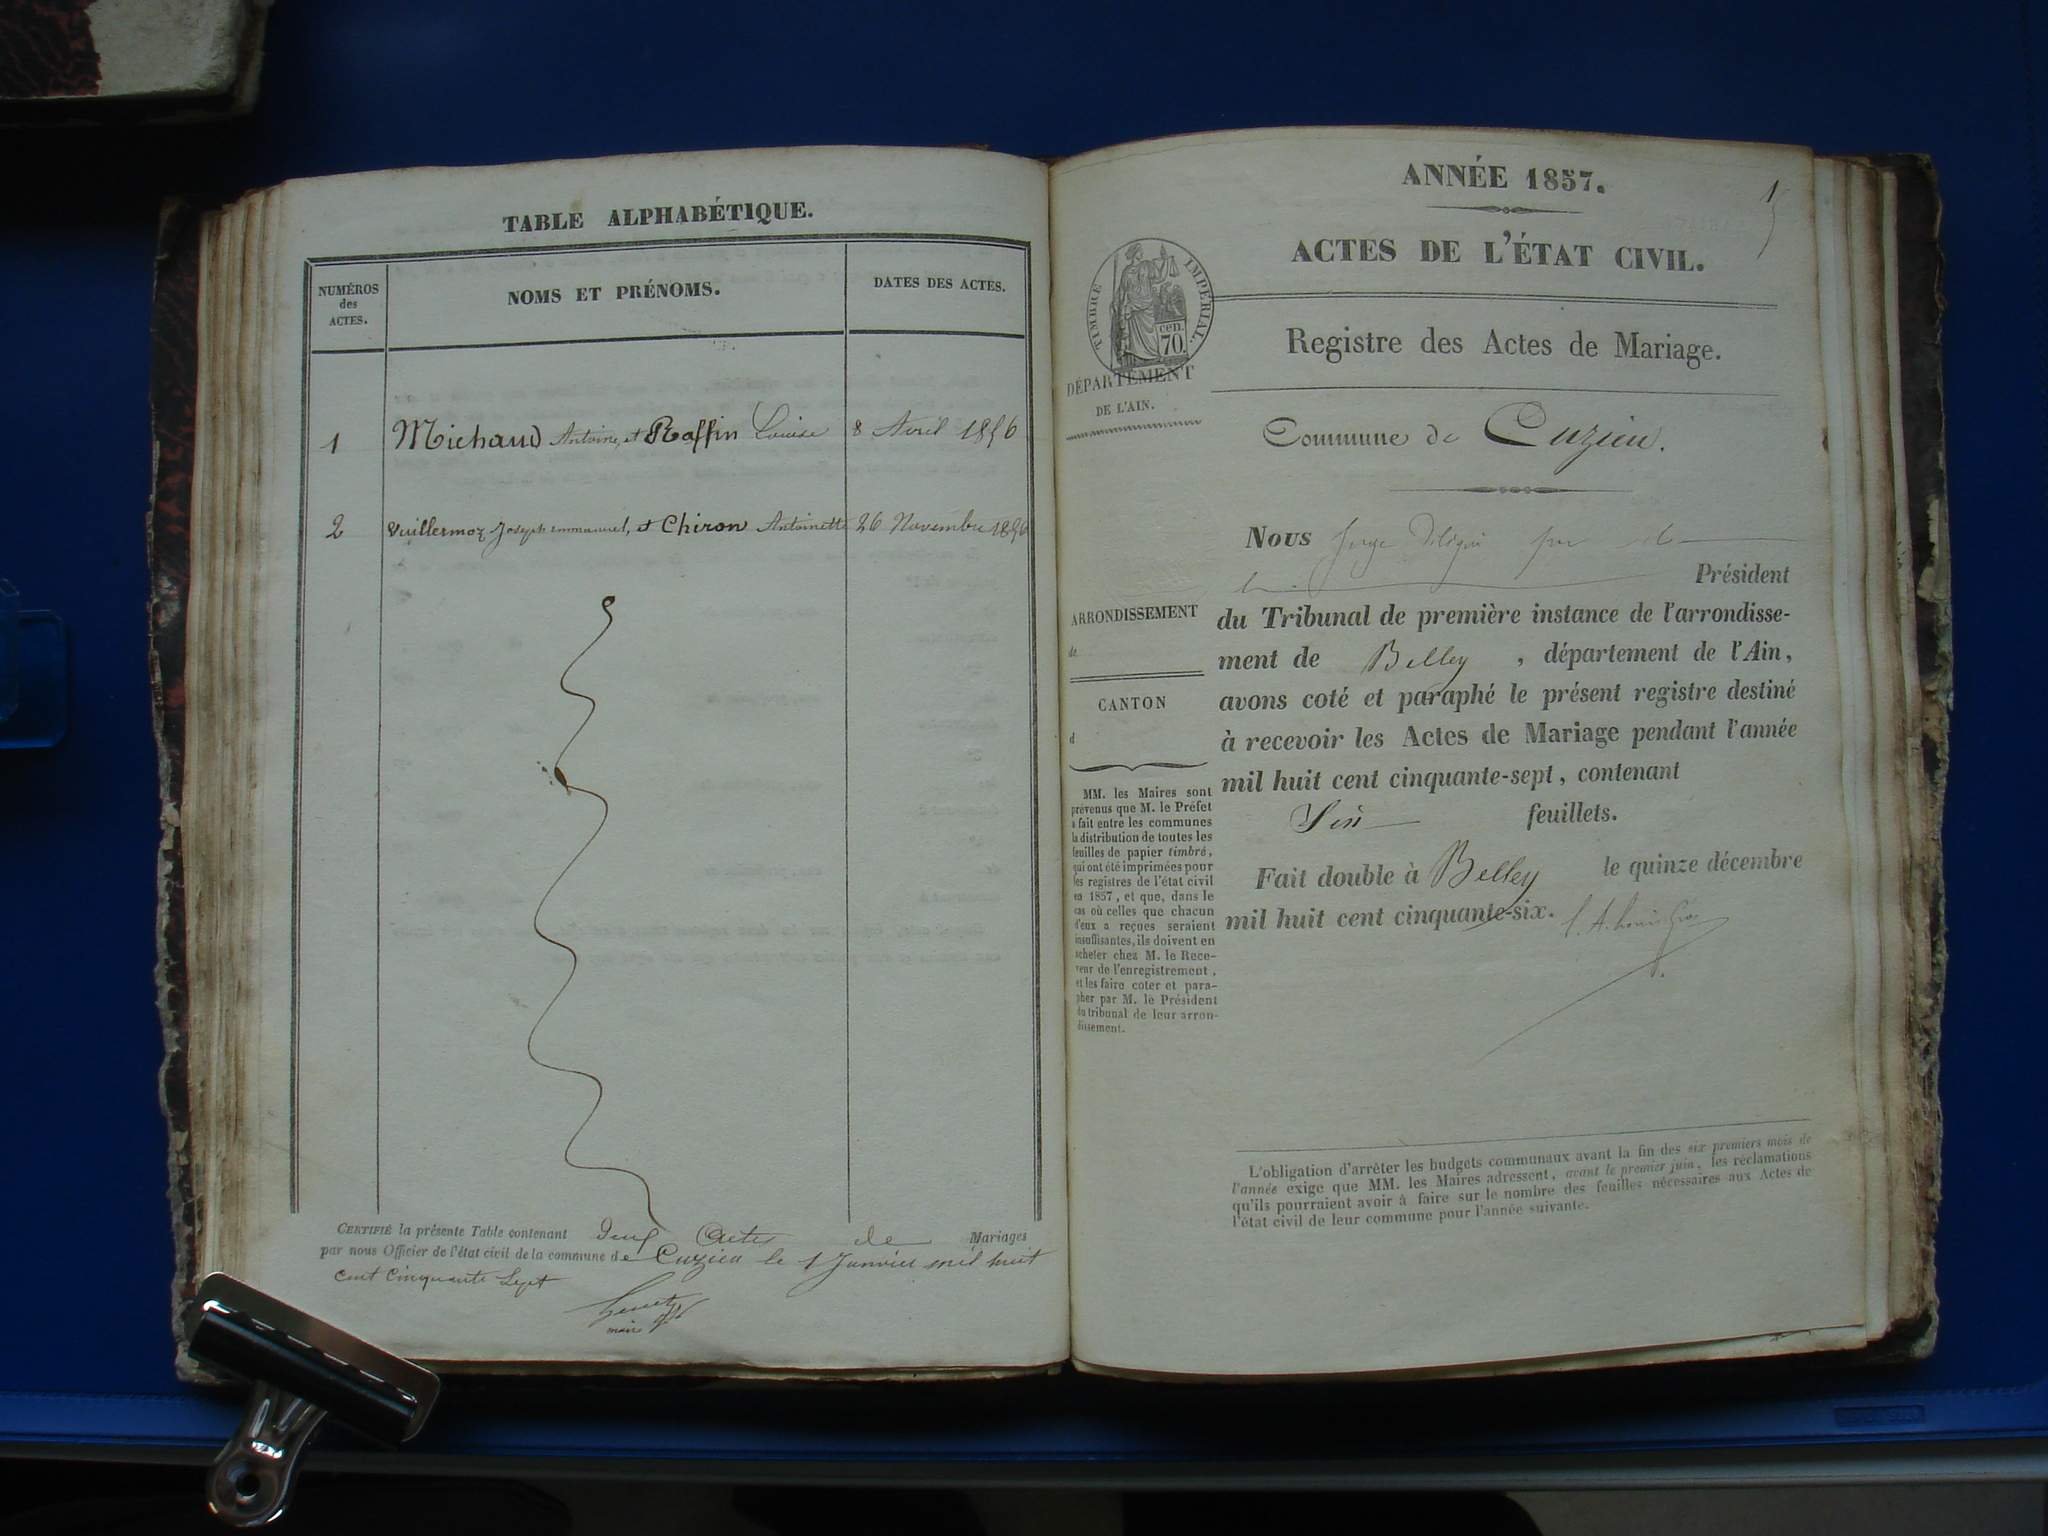 TABLE ALPHABÉTIQUE.
NUMÉROS
des
ACTES.
NOMS ET PRÉNOMS.
DATES DES ACTES.
1 Michaud Antoine, et Raffin Louise 8 Avril 1856
2 Vuillermoz Joseph emmanuel, et Chiron Antoinette 26 Novembre 1856
CERTIFIÉ la présente Table contenant Deux Actes de Mariages
par nous Officier de l'état civil de la commune de Cuzieu le 1 Janvier mil huit
cent cinquante Sept
maire
1
ANNÉE 1857.
ACTES DE L'ÉTAT CIVIL.
TIMBRE IMPÉRIAL.
cen.
70
Registre des Actes de Mariage.
DÉPARTEMENT
DE L'AIN.
Commune de Cuzieu.
Nous Juge
Président
du Tribunal de première instance de l'arrondisse-
ment de Belley , département de l'Ain,
avons coté et paraphé le présent registre destiné
à recevoir les Actes de Mariage pendant l'année
mil huit cent cinquante-sept, contenant
Six feuillets.
Fait double à Belley le quinze décembre
mil huit cent cinquante-six.
ARRONDISSEMENT
de
CANTON
d
MM. les Maires sont
prévenus que M. le Préfet
a fait entre les communes
la distribution de toutes les
feuilles de papier timbré,
qui ont été imprimées pour
les registres de l'état civil
en 1857, et que, dans le
cas où celles que chacun
d'eux a reçues seraient
insuffisantes, ils doivent en
acheter chez M. le Rece-
veur de l'enregistrement,
et les faire coter et para-
pher par M. le Président
du tribunal de leur arron-
dissement.
L'obligation d'arrêter les budgets communaux avant la fin des six premiers mois de
l'année exige que MM. les Maires adressent, avant le premier juin, les réclamations
qu'ils pourraient avoir à faire sur le nombre des feuilles nécessaires aux Actes de
l'état civil de leur commune pour l'année suivante.